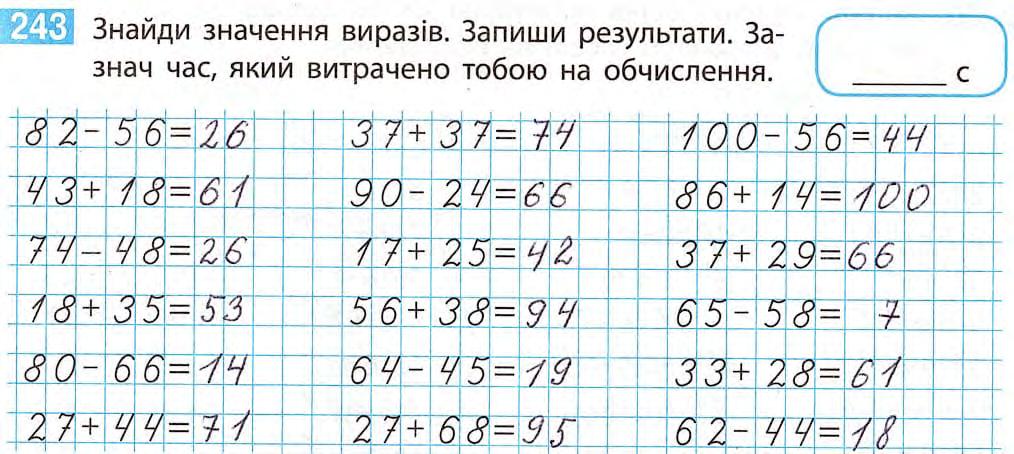 243 Знайди значення виразів. Запиши результати. За-
знач час, який витрачено тобою на обчислення.
______ с
82-56=26 37+37=74 100-56=44
43+18=61 90-24=66 86+14=100
74-48=26 17+25=42 37+29=66
18+35=53 56+38=94 65-58= 7
80-66=14 64-45=19 33+28=61
27+44=71 27+68=95 62-44=18